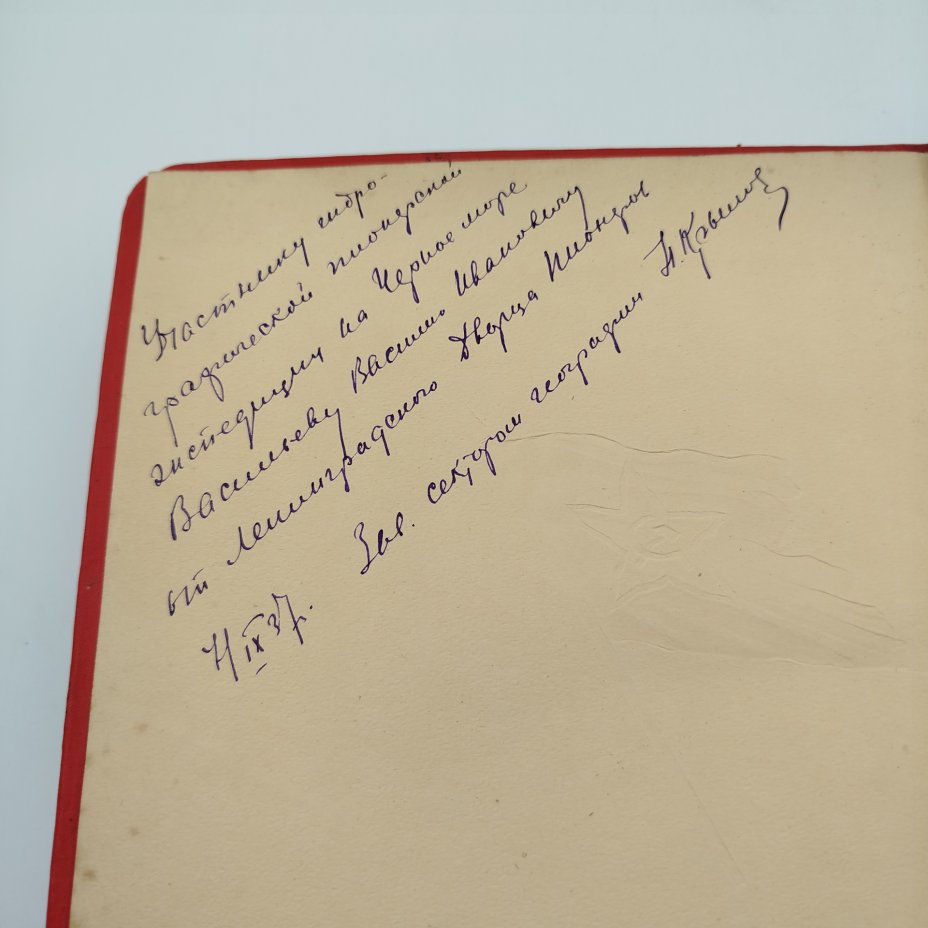 Участнику гидро-
графической пионерской
экспедиции на Черное море
Васильеву Василию Ивановичу
от Ленинградского Дворца Пионеров
Зав. сектором географии Н. Крылов
IX 37г.